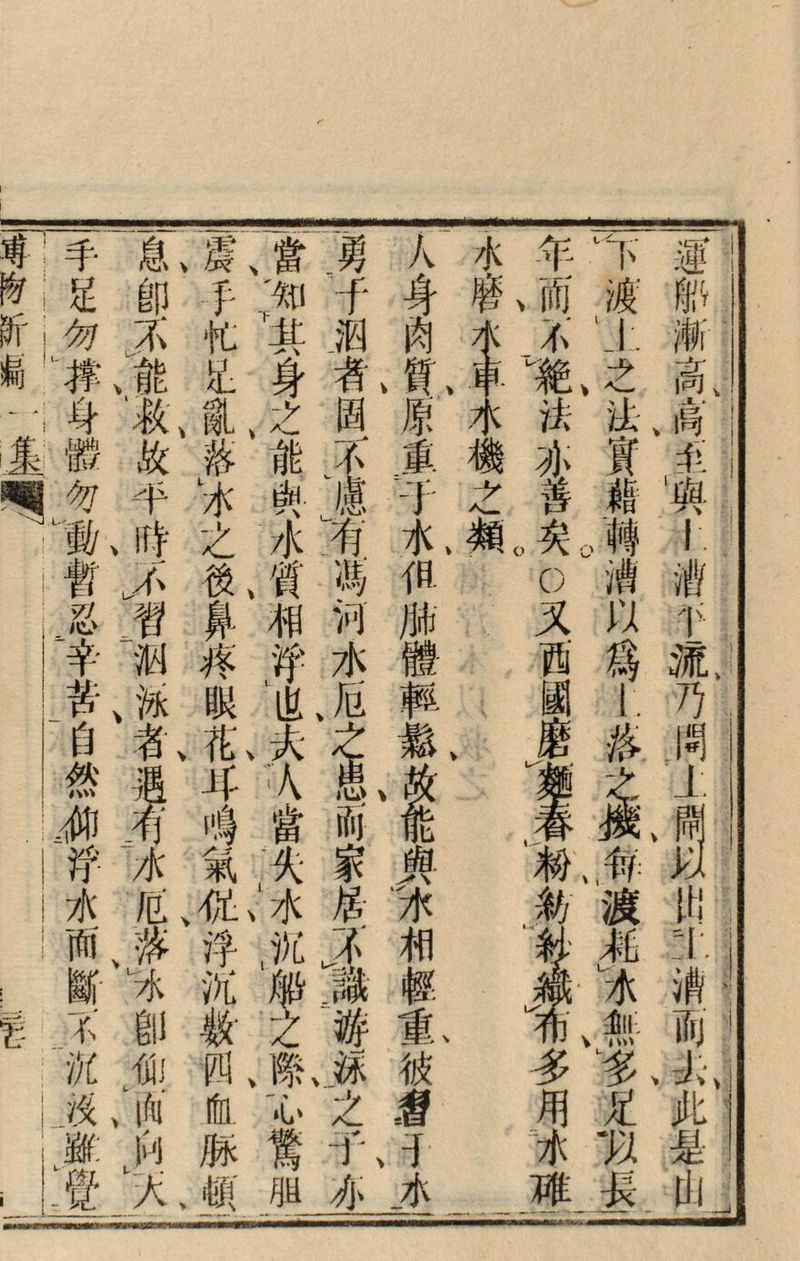 運船漸高、高至與上漕平流、乃開上閘以出上漕而去、此是由
下渡上之法、實藉轉漕以爲上落之機、每渡耗水無多、足以長
年而不絶、法亦善矣。○又西國磨麵舂粉、紡紗織布、多用水碓
水磨、水車水機之類。
人身肉質、原重于水、但肺體輕鬆、故能與水相輕重、彼習于水
勇于泅者、固不慮有馮河水厄之患、而家居不識游泳之子、亦
當知其身之能與水質相浮也、夫人當失水沉船之際、心驚胆
震、手忙足亂、落水之後、鼻疼眼花、耳鳴氣促、浮沉數四、血脉頓
息、卽不能救、故平時不習泅泳者、遇有水厄、落水卽仰面向天、
手足勿撑、身體勿動、暫忍辛苦、自然仰浮水面、斷不沉沒、雖覺
博物新編 一集